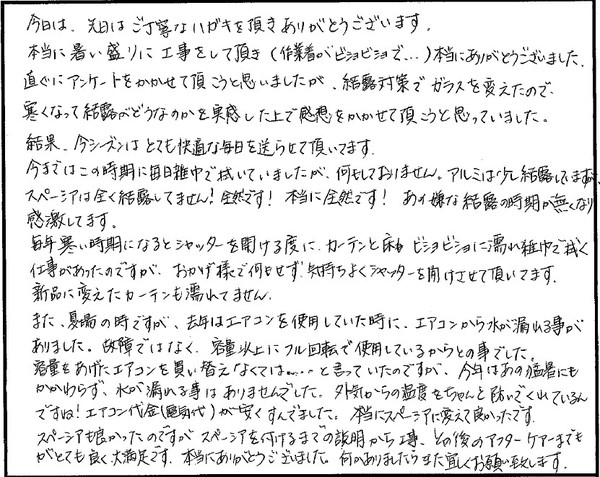 今日は、先日はご丁寧なハガキを頂きありがとうございます。
本当に暑い盛りに工事をして頂き(作業着がビショビショで…)本当にありがとうございました。
直ぐにアンケートをかかせて頂こうと思いましたが、結露対策でガラスを変えたので、
寒くなって結露がどうなのかを実感した上で感想をかかせて頂こうと思っていました。
結果、今シーズンはとても快適な毎日を送らせて頂いてます。
今まではこの時期に毎日雑巾で拭いていましたが、何もしておりません。アルミは少し結露していますが、
スペーシアは全く結露してません!全然です!本当に全然です!あの嫌な結露の時期が無くなり
感激してます。
毎年寒い時期になるとシャッターを開ける度に、カーテンと床がビショビショに濡れ雑巾で拭く
仕事があったのですが、おかげ様で何もせず、気持ちよくシャッターを開けさせて頂いてます。
新品に変えたカーテンも濡れてません。
また、夏場の時ですが、去年はエアコンを使用していた時に、エアコンから水が漏れる事が
ありました。故障ではなく、容量以上にフル回転で使用しているからとの事でした。
容量をあげたエアコンを買い替えなくては…。と言っていたのですが、今年はあの猛暑にも
かかわらず、水が漏れる事はありませんでした。外気からの温度をちゃんと防いでくれているん
ですね!エアコン代金(電気代)が安くすんでました。本当にスペーシアに変えて良かったです。
スペーシアも良かったのですがスペーシアを付けるまでの説明から工事、その後のアフターケアーまでも
がとても良く、大満足です。本当にありがとうございました。何かありましたらまた宜しくお願い致します。